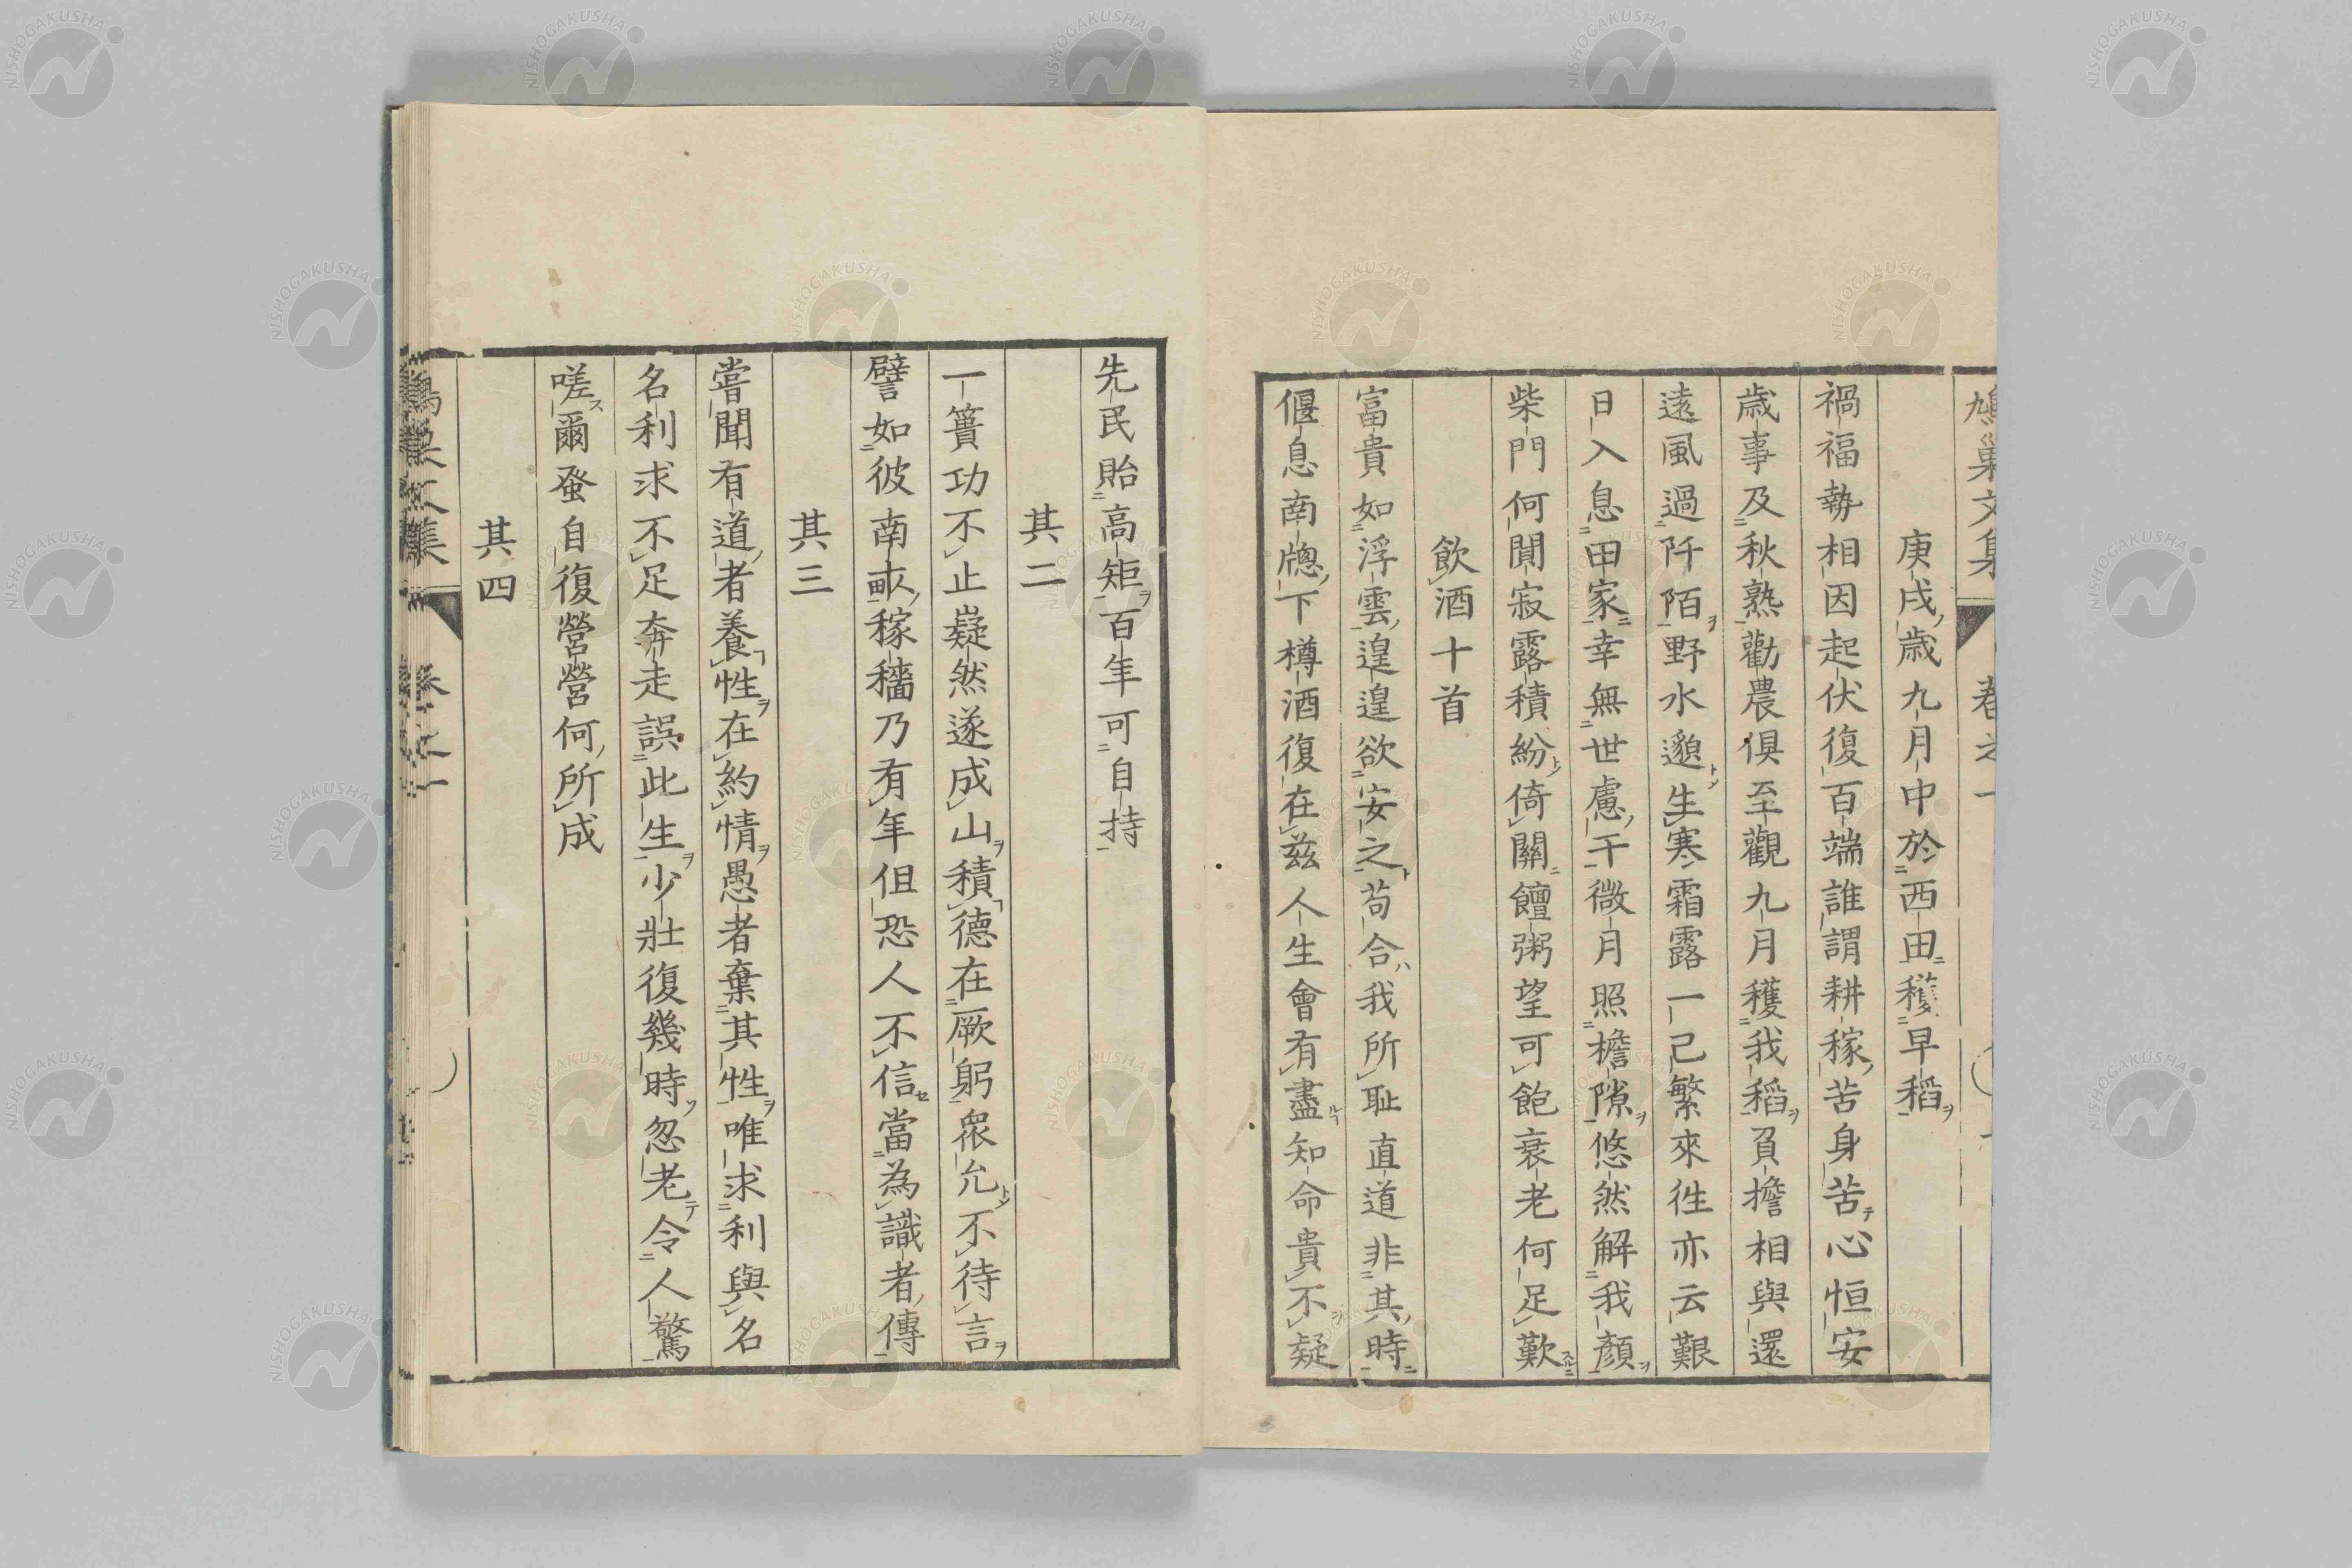 鳩巢文集 卷之一
庚戌歳九月中於西田穫早稻
禍福勢相因起伏復百端誰謂耕稼苦身苦心恒安
歳事及秋熟勸農俱至觀九月穫我稻負擔相與還
遠風過阡陌野水邈生寒霜露一已繁來徃亦云艱
日入息田家幸無世慮干微月照檐隙悠然解我顏
柴門何閴寂露積紛倚關饘粥望可飽衰老何足歎
飲酒十首
富貴如浮雲遑遑欲安之苟合我所耻直道非其時
偃息南牕下樽酒復在兹人生會有盡知命貴不疑
先民貽高矩百年可自持
其二
一簣功不止嶷然遂成山積德在厥躬衆允不待言
譬如彼南畝稼穡乃有年但恐人不信當為識者傳
其三
嘗聞有道者養性在約情愚者棄其性唯求利與名
名利求不足奔走誤此生少壯復幾時忽老令人驚
嗟爾蛩自復營營何所成
其四
鳩巢文集 卷之一
NISHOGAKUSHA